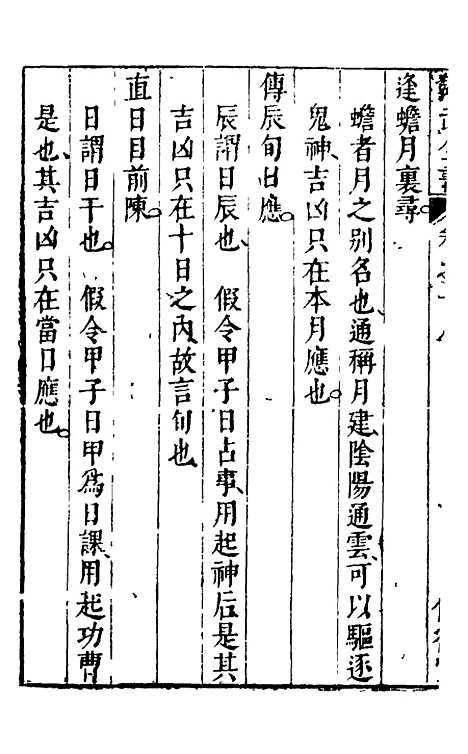 逢蟾月裏尋。
蟾者月之别名也、通稱月建、陰陽通雲、可以驅逐
鬼神、吉凶只在本月應也。
傳辰旬日應。
辰謂日辰也、 假令甲子日占事、用起神后是其
吉凶只在十日之內、故言旬也、
直日目前陳。
日謂日干也。 假令甲子日甲爲日課、用起功曹
是也、其吉凶只在當日應也。